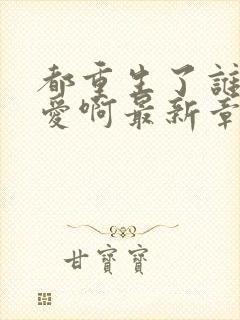 都重生了誰
愛啊最新章
甘寶寶